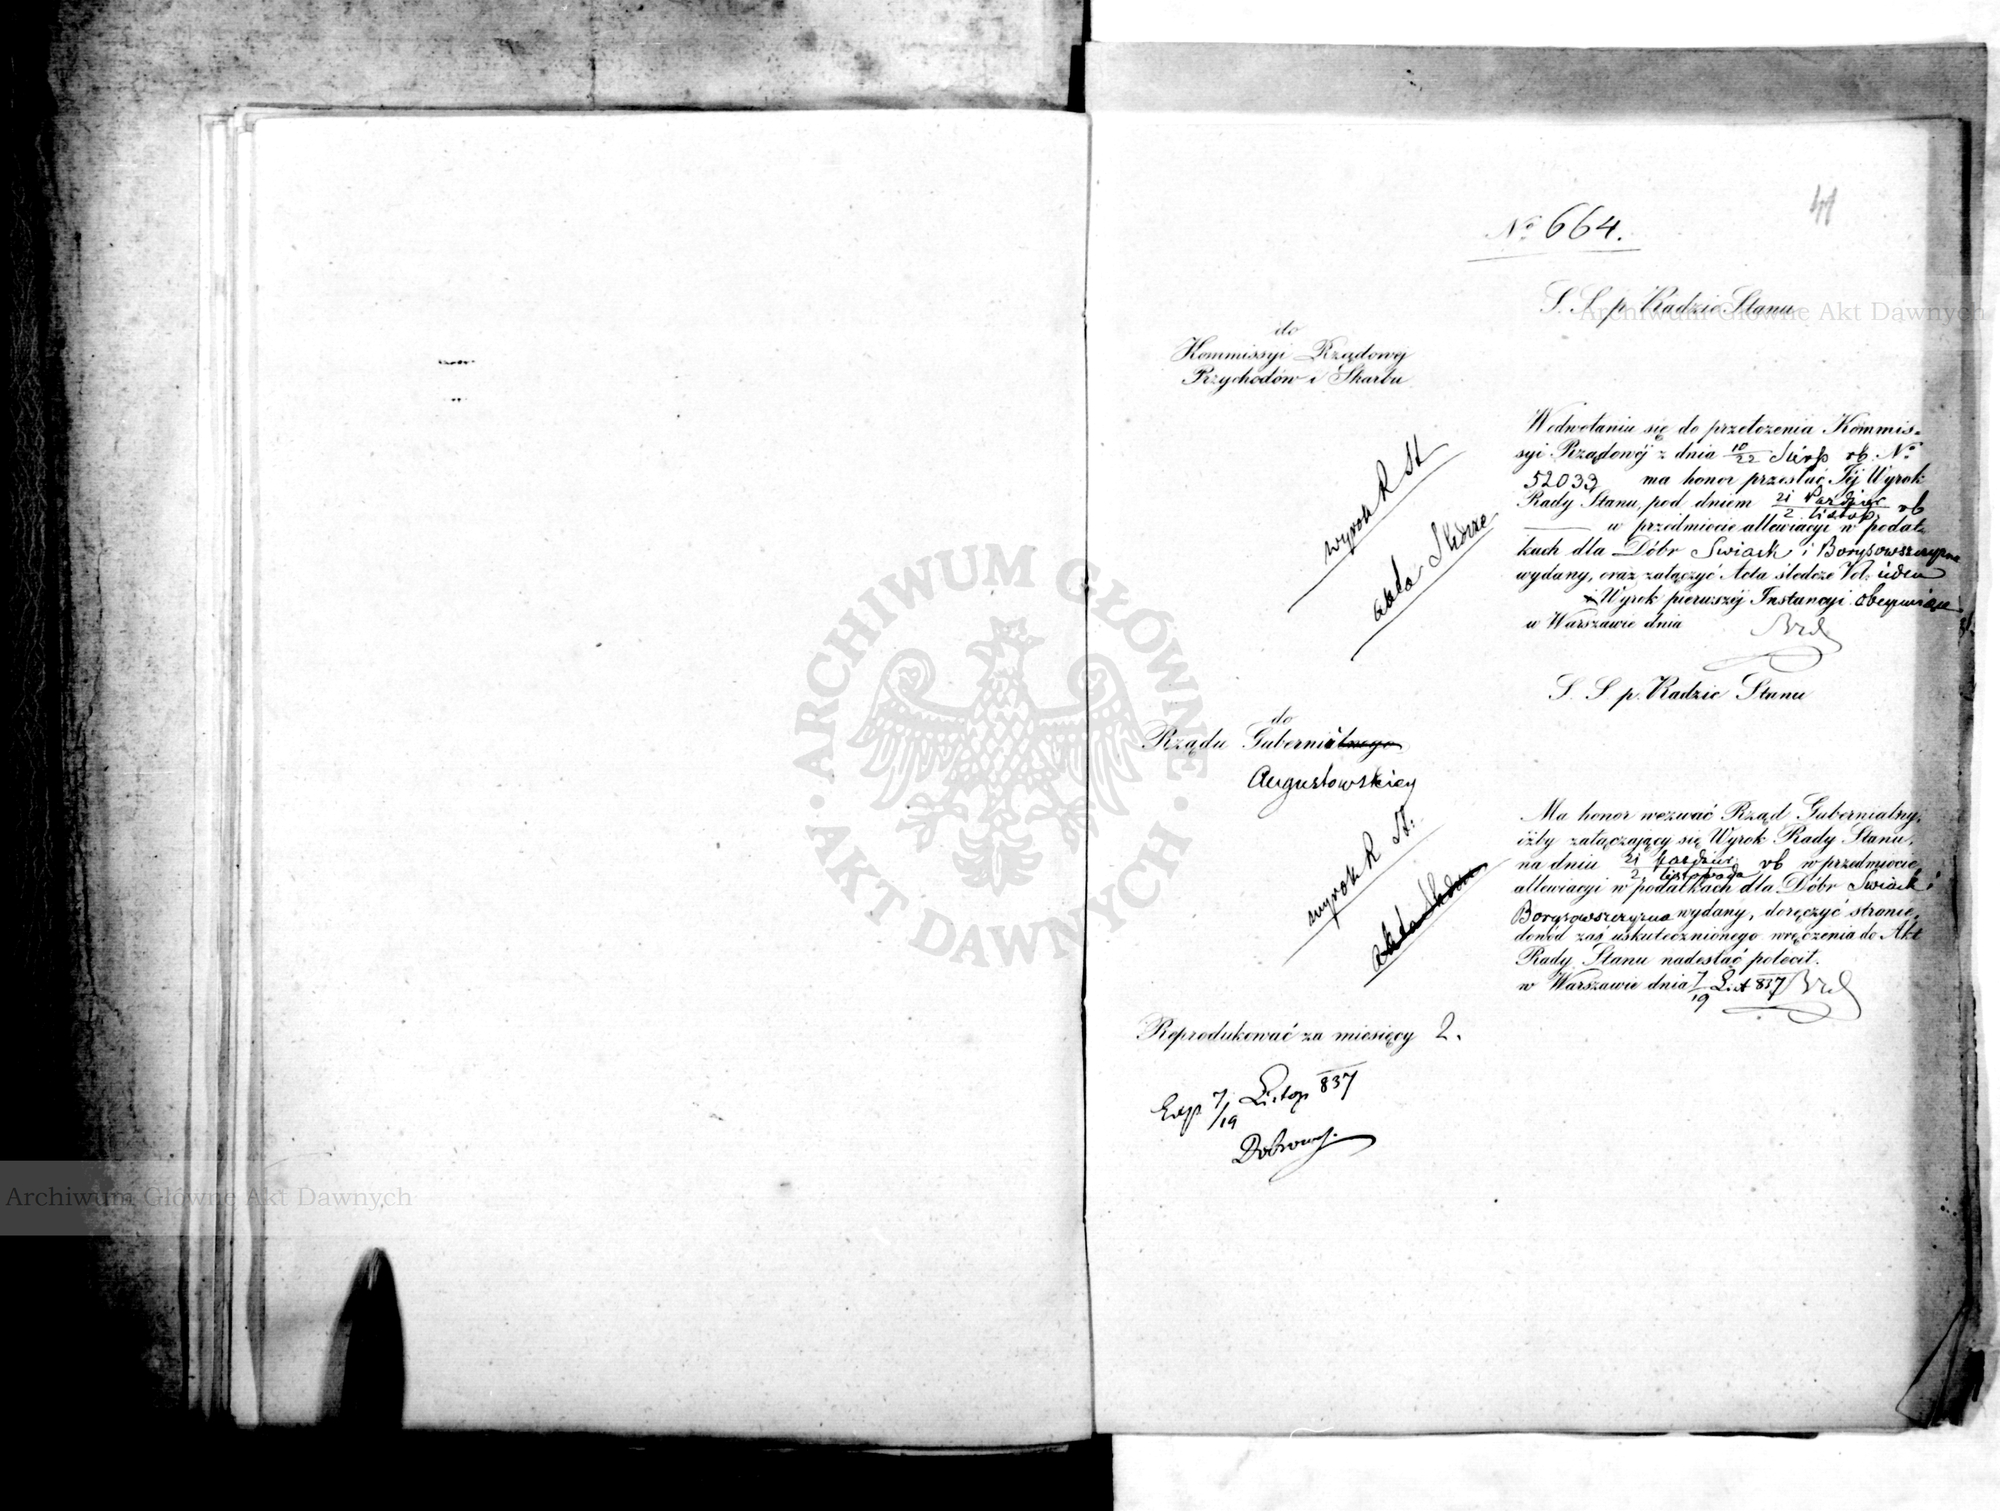 41
No 664.
S. S. p. Radzie Stanu
do
Kommissyi Rządowej
Przychodów i Skarbu
Wodwołaniu się do przełożenia Kommis-
syi Rządowéj z dnia 10/22 Sierp rb. No
52033 ma honor przesłać Jéj Wyrok
Rady Stanu, pod dniem 21 Paździer/2 Listop. rb
w przedmiocie allewiacyi w podat-
kach dla Dóbr Swiack i Borysowszczyzna
wydany, oraz załączyć Acta śledcze Vol: ieden
i Wyrok pierwszéj Instancyi obeymiące
w Warszawie dnia
wyrok R St
akta Śledcze
S. S p. Radzie Stanu
do
Rządu Gubernialnego
Augustowskiey
Ma honor wezwać Rząd Gubernialny,
iżby załączający się Wyrok Rady Stanu,
na dniu 21 Paździer/2 Listopada rb w przedmiocie
allewiacyi w podatkach dla Dóbr Swiack i
Borysowszczyzna wydany, doręczyć stronie,
dowód zaś uskutecznionego wręczenia do Akt
Rady Stanu nadesłać polecił.
w Warszawie dnia 7/19 List 837
wyrok R St:
akta Śledcze
Reprodukować za miesięcy 2.
Exp 7/19 Listop 837
Archiwum Główne Akt Dawnych
Archiwum Główne Akt Dawnych
ARCHIWUM GŁÓWNE · AKT DAWNYCH ·